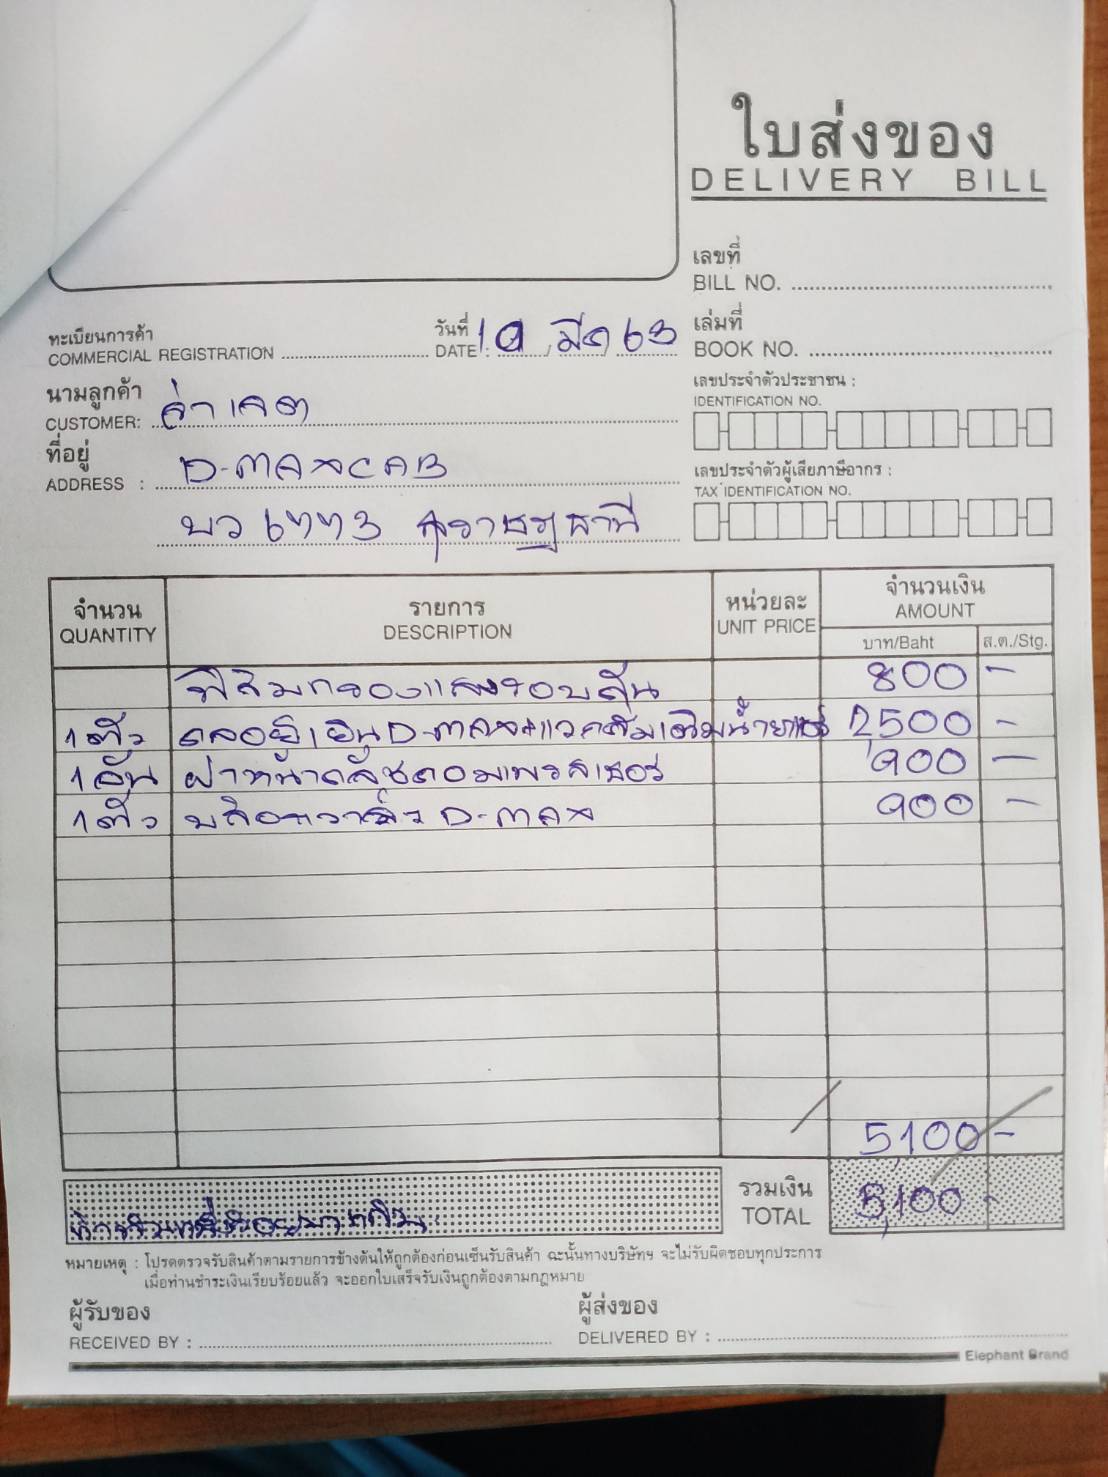 ใบส่งของ
DELIVERY BILL
เลขที่
BILL NO.
ทะเบียนการค้า
COMMERCIAL REGISTRATION
วันที่
DATE : 10 มีค 63
เล่มที่
BOOK NO.
นามลูกค้า
CUSTOMER:
ที่อยู่
ADDRESS : D-MAX CAB
บว 6773 สุราษฎธานี
เลขประจำตัวประชาชน :
IDENTIFICATION NO.
เลขประจำตัวผู้เสียภาษีอากร :
TAX IDENTIFICATION NO.
จำนวน รายการ หน่วยละ จำนวนเงิน
QUANTITY DESCRIPTION UNIT PRICE AMOUNT
บาท/Baht ส.ต./Stg.
ฟิล์มกรองแสงรอบคัน 800 -
1 ตัว คอยล์เย็น D-max+แวคคั่มเติมน้ำยาแอร์ 2500 -
1 อัน ฝาหน้าคลัชคอมเพรสเซอร์ 900 -
1 ตัว D-max 900 -
5,100 -
รวมเงิน
TOTAL 5,100 -
หมายเหตุ : โปรดตรวจรับสินค้าตามรายการข้างต้นให้ถูกต้องก่อนเซ็นรับสินค้า ฉะนั้นทางบริษัทฯ จะไม่รับผิดชอบทุกประการ
เมื่อท่านชำระเงินเรียบร้อยแล้ว จะออกใบเสร็จรับเงินถูกต้องตามกฎหมาย
ผู้รับของ
RECEIVED BY :
ผู้ส่งของ
DELIVERED BY :
Elephant Brand